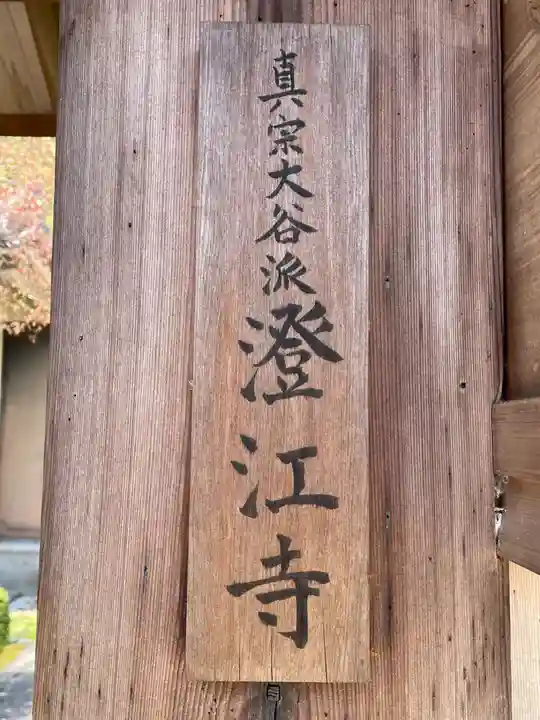 真宗大谷派澄江寺